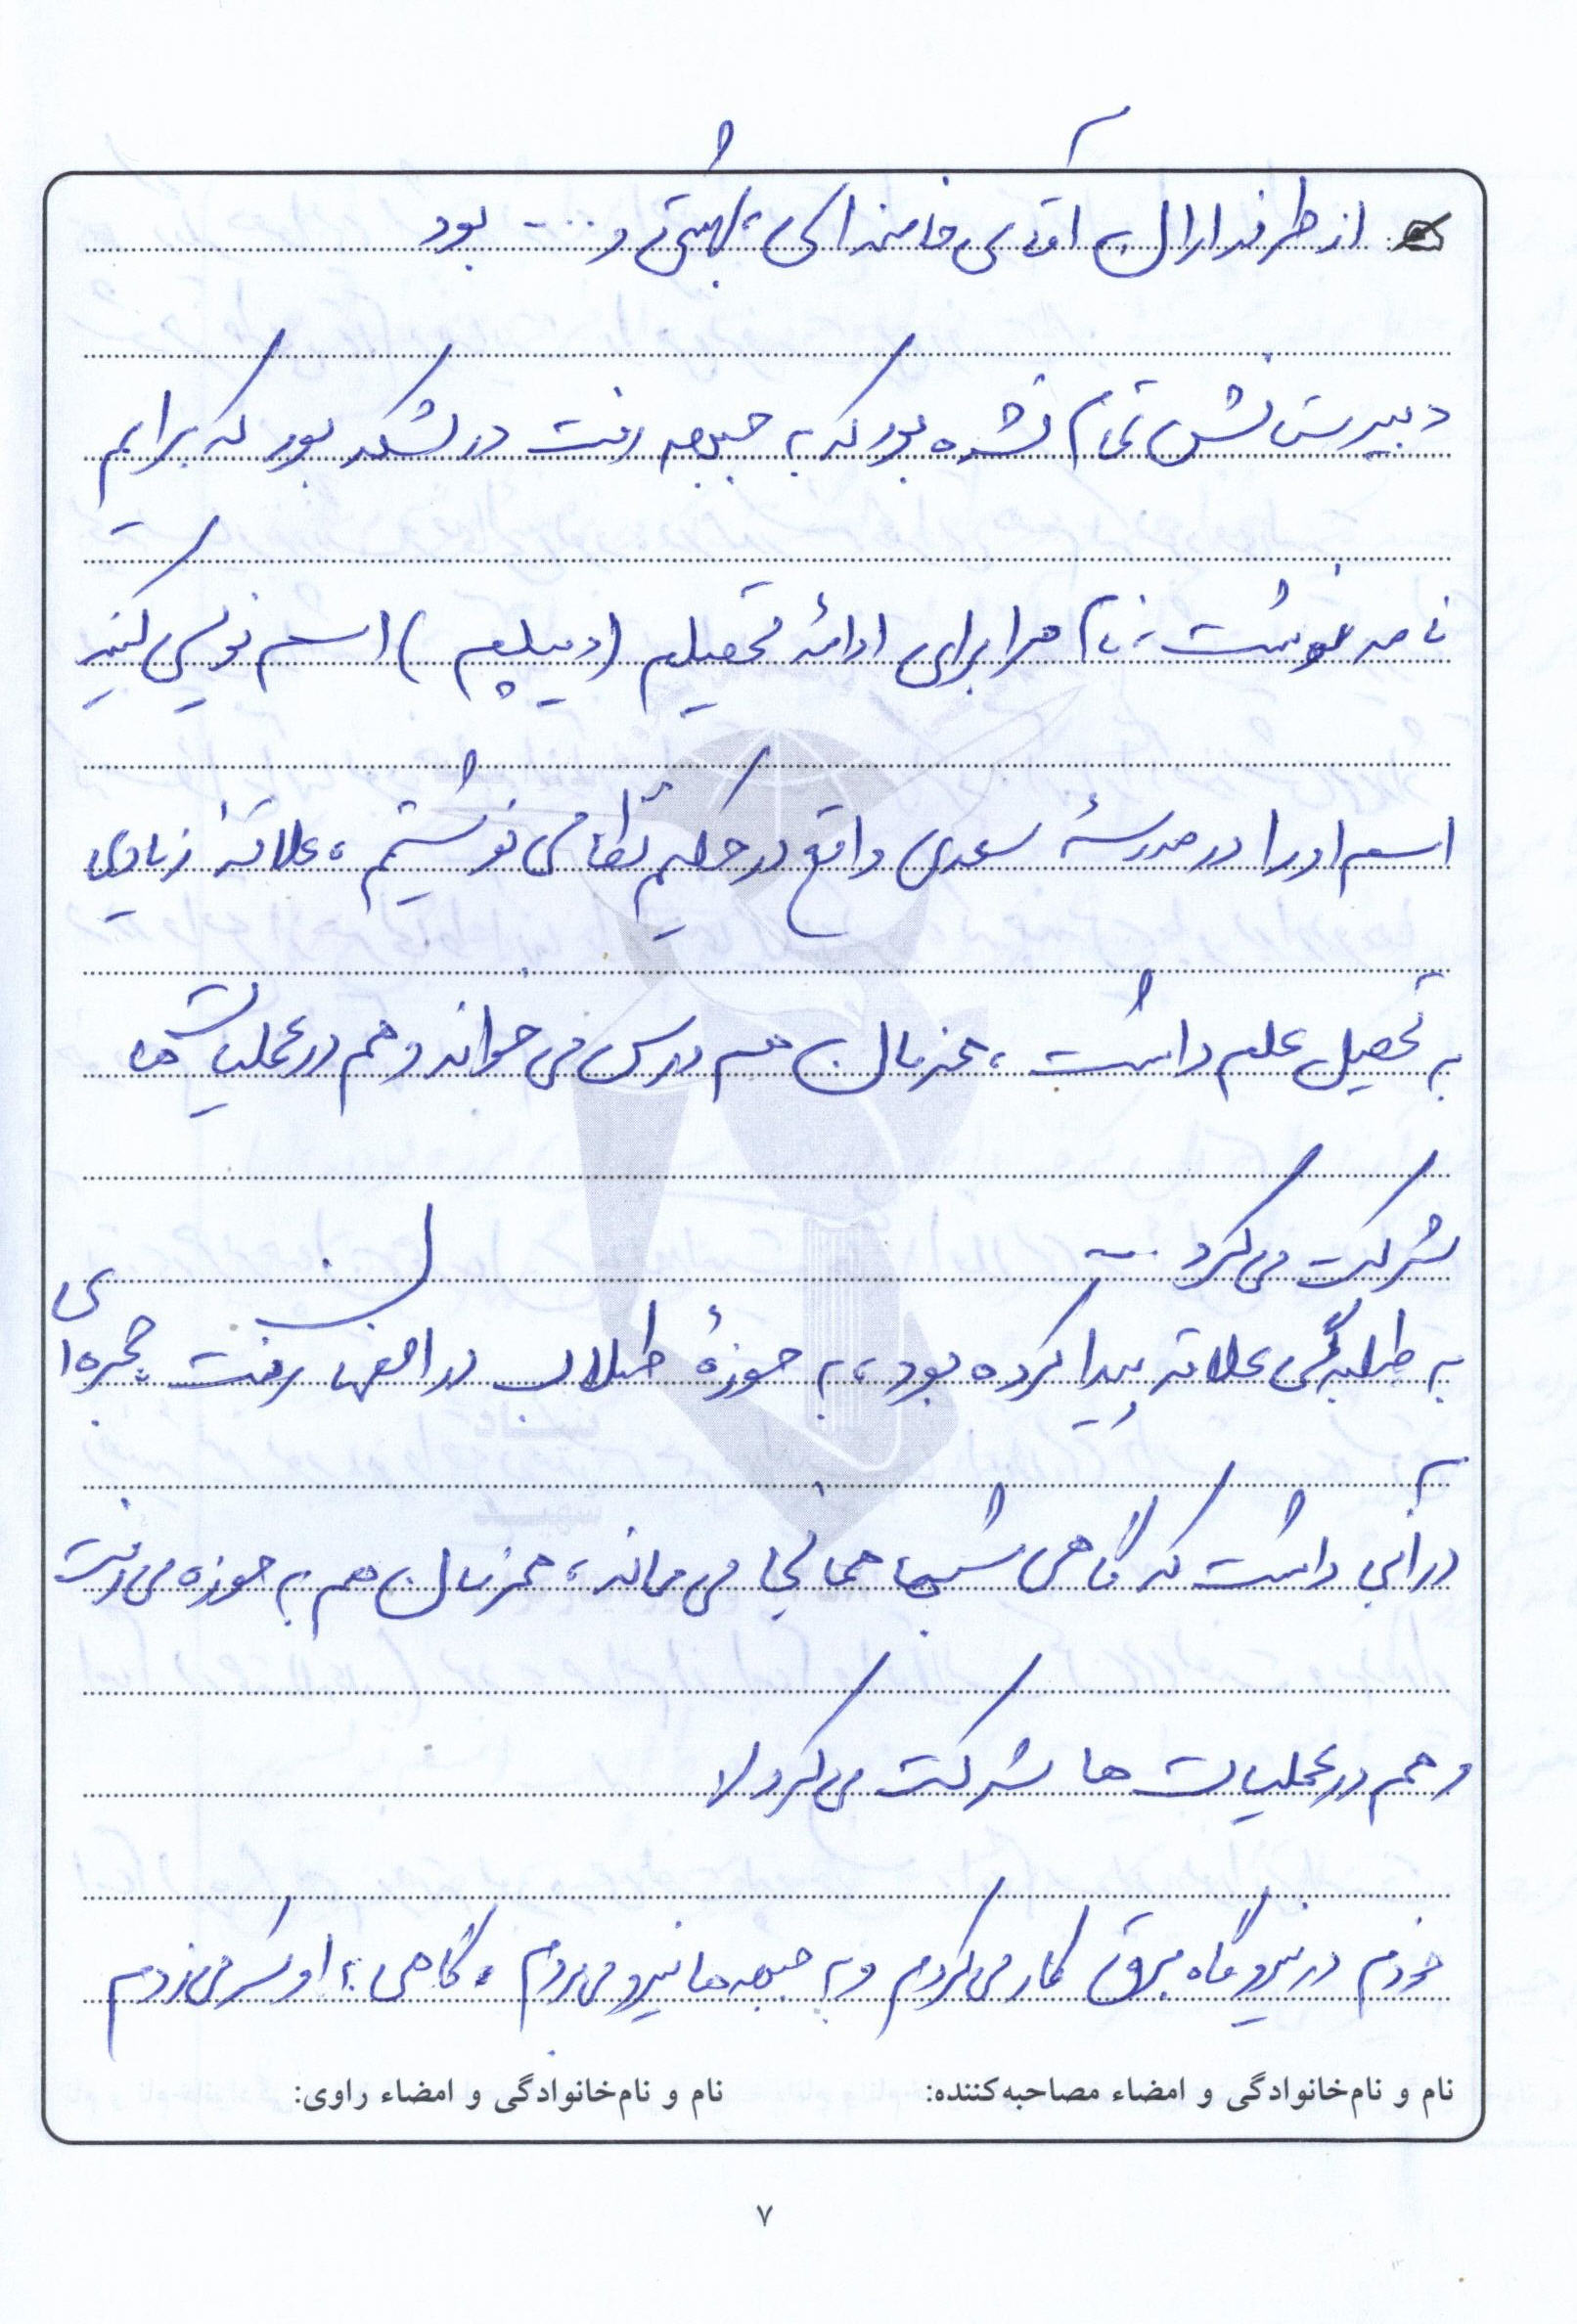 از طرفداران آقای خامنه‌ای، بهشتی و .... بود
دبیرستانش تمام نشده بود که به جبهه رفت در لشکر بود که برایم
نامه نوشت: نام مرا برای ادامهٔ تحصیلم (دیپلم) اسم نویسی کنید
اسم او را در مدرسهٔ سعدی واقع در حکیم نظامی نوشتیم، علاقهٔ زیادی
به تحصیل علم داشت، همزمان هم درس می خواند و هم در عملیات ها
شرکت می کرد ...
به طلبگی علاقه پیدا کرده بود، به حوزهٔ طلاب در اصفهان رفت حجره ای
در آنجا داشت که گاهی شبها همانجا می ماند، همزمان هم به حوزه می رفت
و هم در عملیات ها شرکت می کرد
خودم در نیروگاه برق کار می کردم و به جبهه ها نیرو می بردم، گاهی به او سر می زدم
نام و نام‌خانوادگی و امضاء مصاحبه‌کننده: نام و نام‌خانوادگی و امضاء راوی:
۷